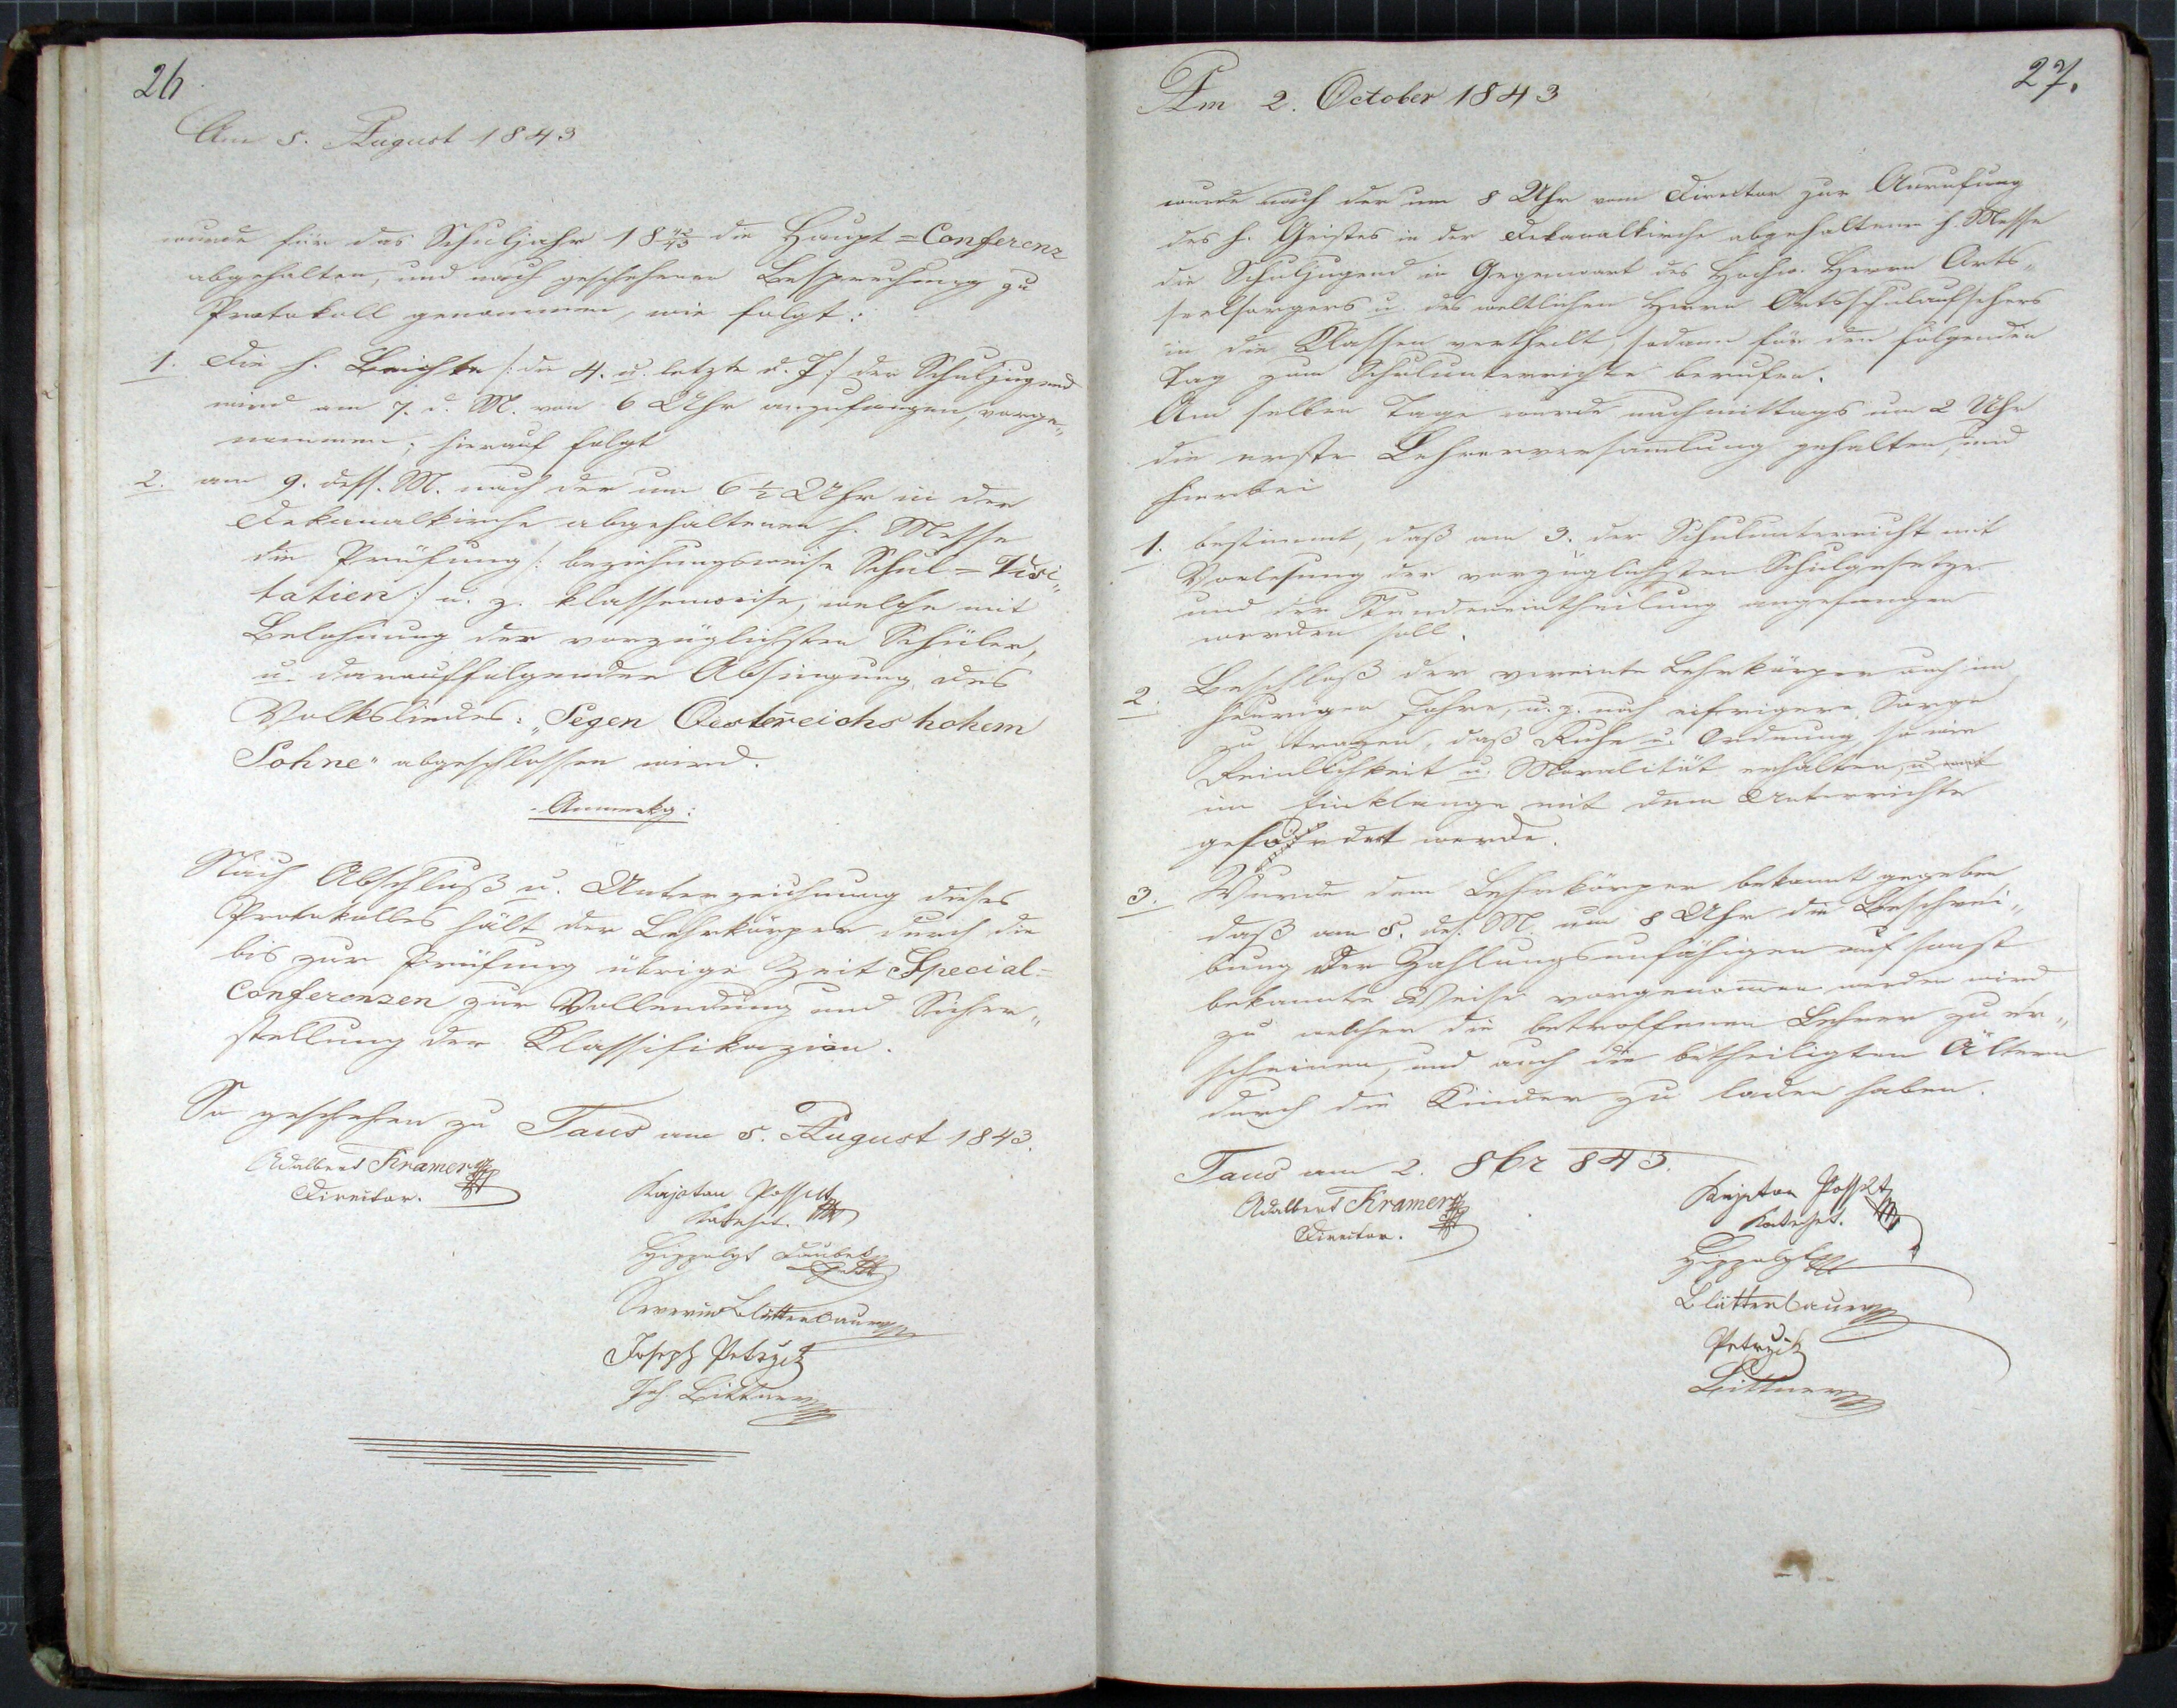 26
Am 5. August 1843
wurde für das Schuljahr 18 42/43 die Haupt=Conferenz
abgehalten, und nach geschehener Besprechung zu
Protokoll genommen, wie folgt:
1. Die h. Beichte /: die 4. u. letzte d. J :/ der Schuljugend
wird am 7. d. M. von 6 Uhr anzufangen, vorge„
nommen; hierauf folgt
2. am 9. dess. M. nach der um 6 1/2 Uhr in der
Dekanalkirche abgehaltenen h. Messe
die Prüfung /: beziehungsweise Schul=Visi„
tation :/ u. z. klassenweise, welche mit
Belohnung der vorzüglichsten Schüler,
u. darauffolgender Absingung des
Volksliedes: „Segen Oesterreichs hohem
Sohne" abgeschlossen wird.
Anmerkg:
Nach Abschluß u. Unterzeichnung dieses
Protokolles hält der Lehrkörper durch die
bis zur Prüfung übrige Zeit Special=
Conferenzen zur Vollendung und Sicher„
stellung der Klassifikazion.
So geschehen zu Taus am 5. August 1843.
Adalbert Kramer
Direktor.
Kajetan Posselt
Katechet.
Hippolyt Daubek
Severin Blättenbauer
Joseph Petrzik
Joh. Bittner
27.
Am 2. October 1843
wurde nach der um 8 Uhr vom Direktor zur Anrufung
des h. Geistes in der Dekanalkirche abgehaltenen h. Messe
die Schuljugend in Gegenwart des Hochw. Herrn Orts„
seelsorgers u. des weltlichen Herrn Ortsschulaufsehers
in die Klassen vertheilt, sodann für den folgenden
Tag zum Schulunterrichte berufen.
Am selben Tage wurde nachmittags um 2 Uhr
die erste Lehrerversamlung gehalten, und
hierbei
1. bestimmt, daß am 3. der Schulunterricht mit
Vorlesung der vorzüglichsten Schulgesetze
und der Stundeneintheilung angefangen
werden soll.
2. Beschloß der vereinte Lehrkörper auch im
heurigen Jahre, u. z. noch eifrigere Sorge
zu tragen, daß Ruhe u. Ordnung, so wie
Reinlichkeit u. Moralität erhalten, u
im Einklange mit dem Unterrichte
gefördert werde.
3. Wurde dem Lehrkörper bekannt gegeben
daß am 5. des. M. um 8 Uhr die Beschrei„
bung der Zahlungsunfähigen auf sonst
bekannte Weise vorgenommen werden wird
zu welcher die betroffenen Lehrer zu er„
scheinen, und auch die betheiligten Ältern
durch die Kinder zu laden haben.
Taus am 2. 8br 843.
Adalbert Kramer
Direktor.
Kajetan Posselt
Katechet.
Hippolyt
Blättenbauer
Petrzik
Bittner